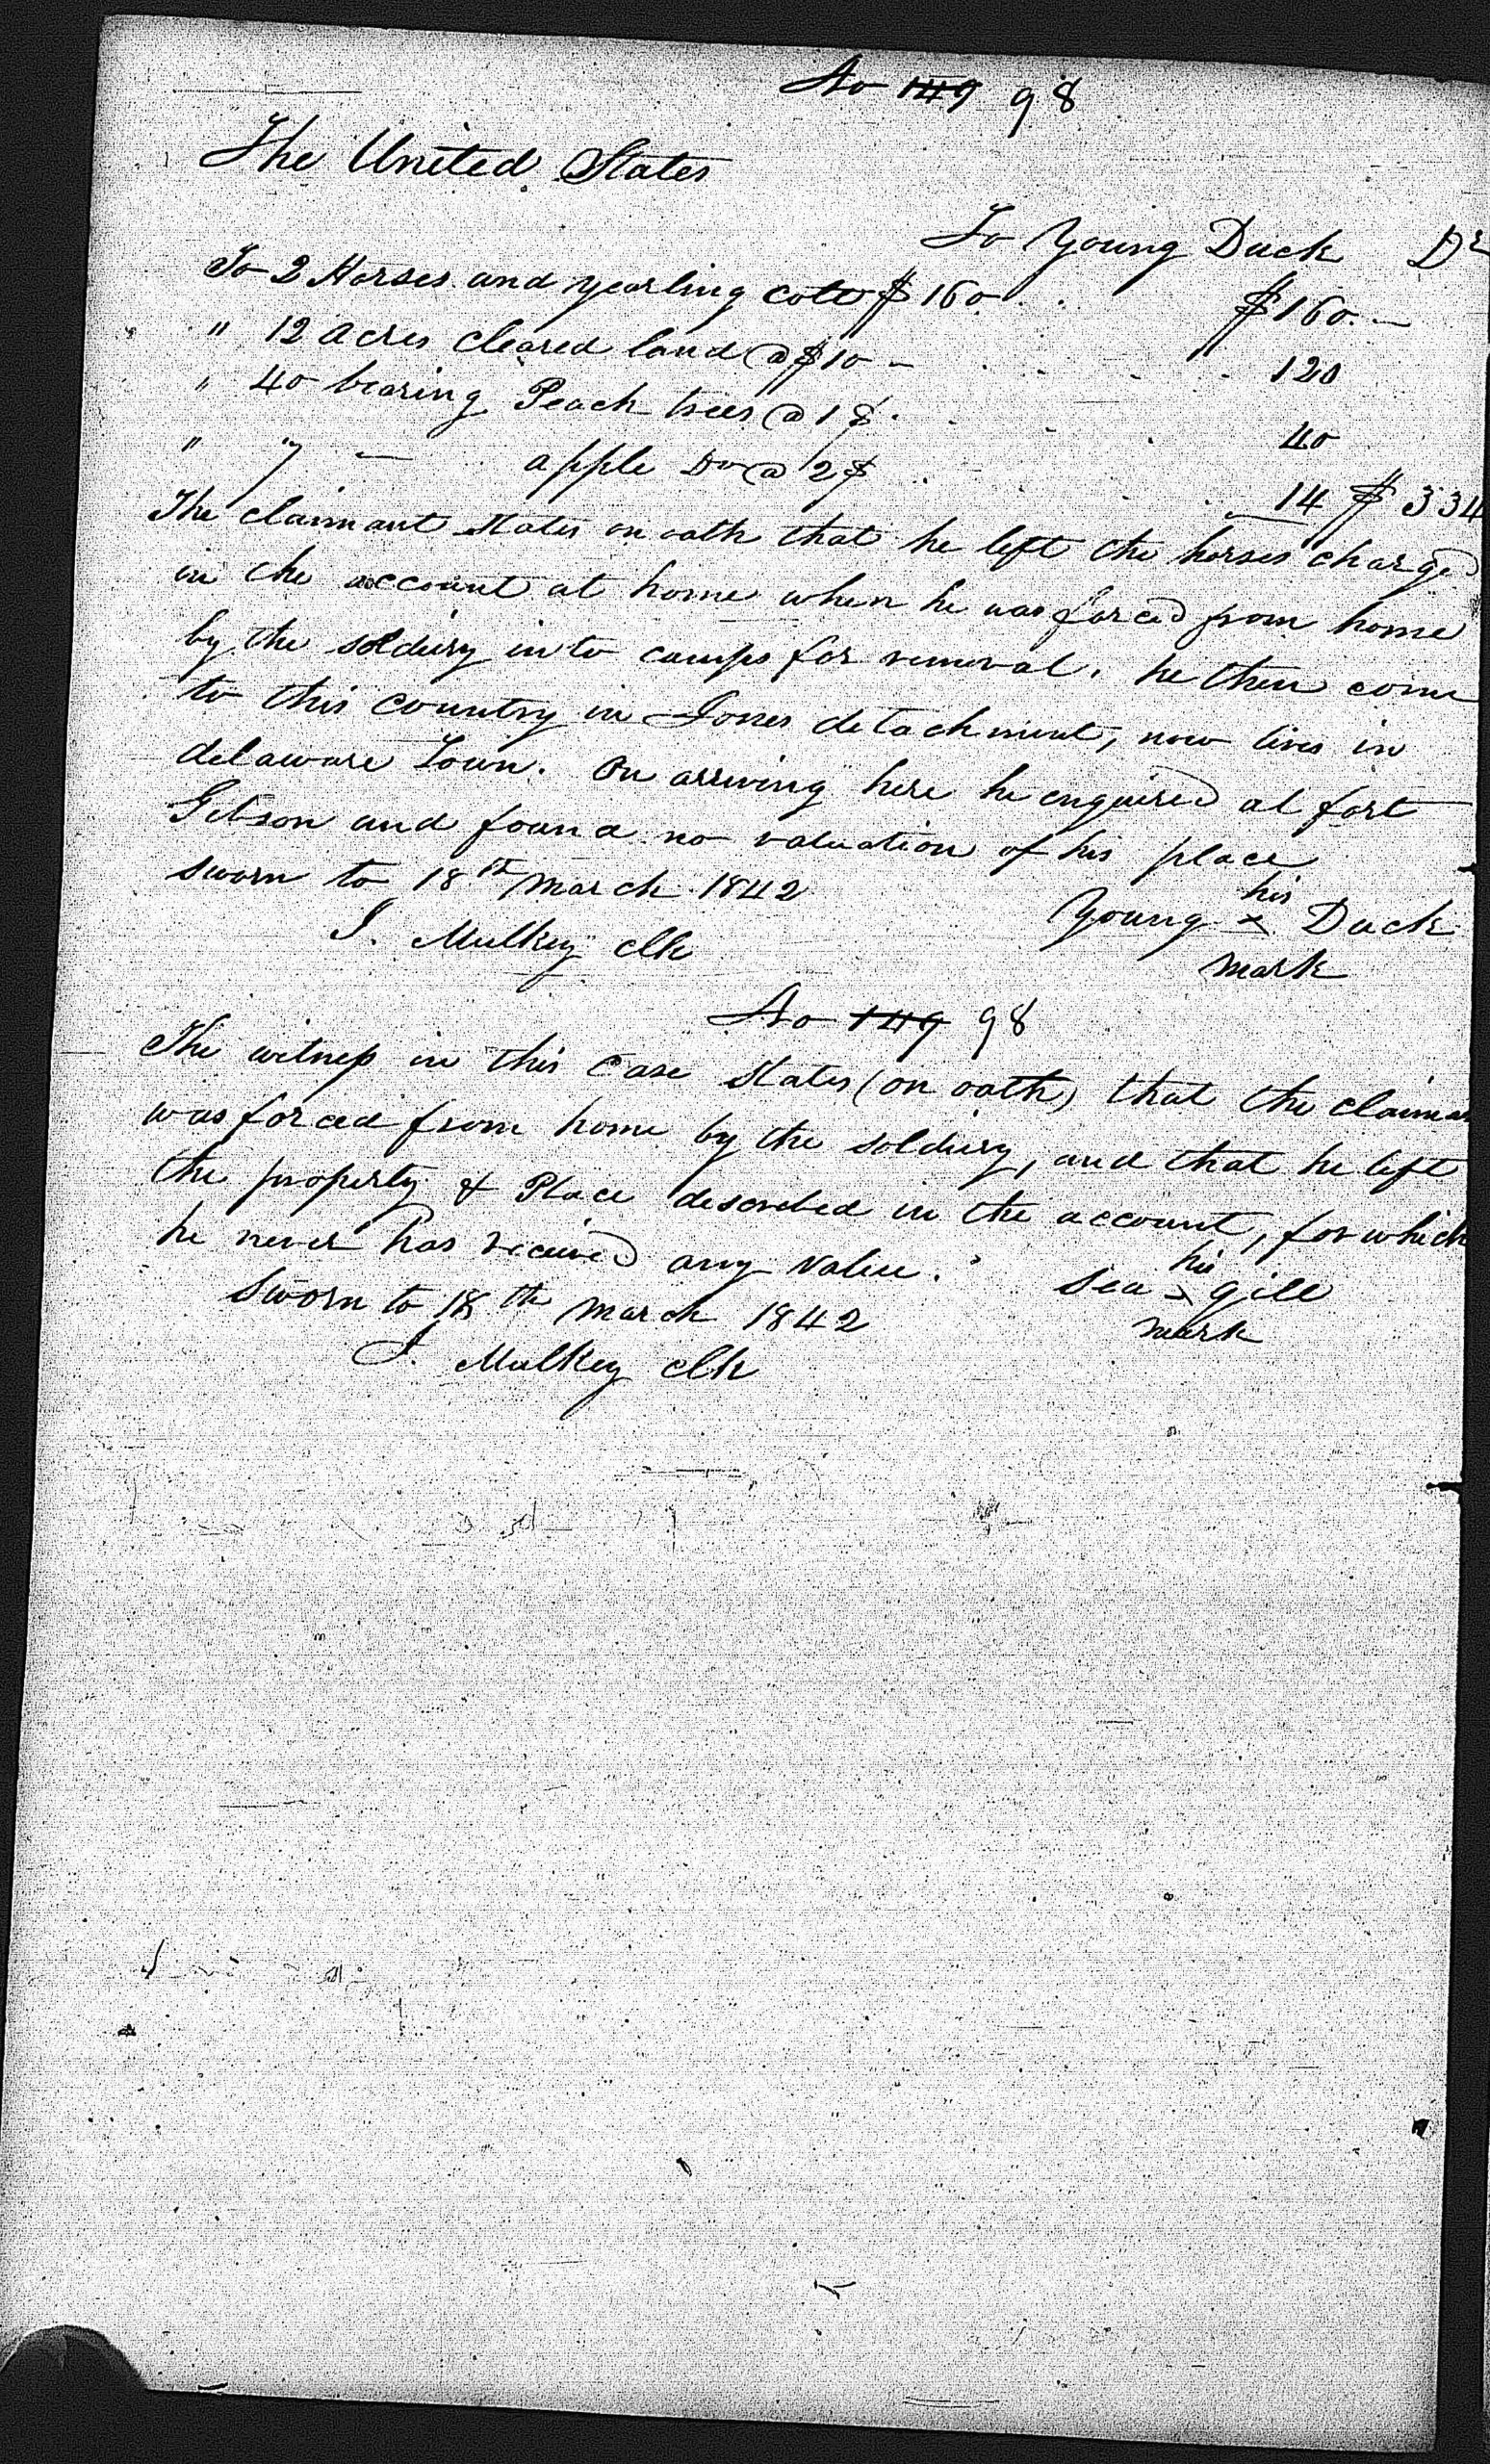 No 149 98
The United States
To Young Duck Dr
To 2 Horses and yearling colt $160. $160.-
" 12 acres cleared land @ $10 - 120
" 40 bearing Peach trees @ 1$. 40
" 7 - apple Do @ 2$ 14 $ 334
The claimant states on oath that he left the horses charged
in the account at home when he was forced from home
by the soldiery into camps for removal. he then come
to this country in Jones detachment, now lives in
delaware Town. On arriving here he enquired at fort
Gibson and found no valuation of his place
sworn to 18th March 1842
his
Young x Duck
mark
J. Mulkey clk
No 149 98
The witness in this case states (on oath) that the claiman
was forced from home by the soldiery, and that he left
the property & Place described in the account, for which
he never has received any value.
his
Sea x gill
mark
Sworn to 18th March 1842
J. Mulkey clk